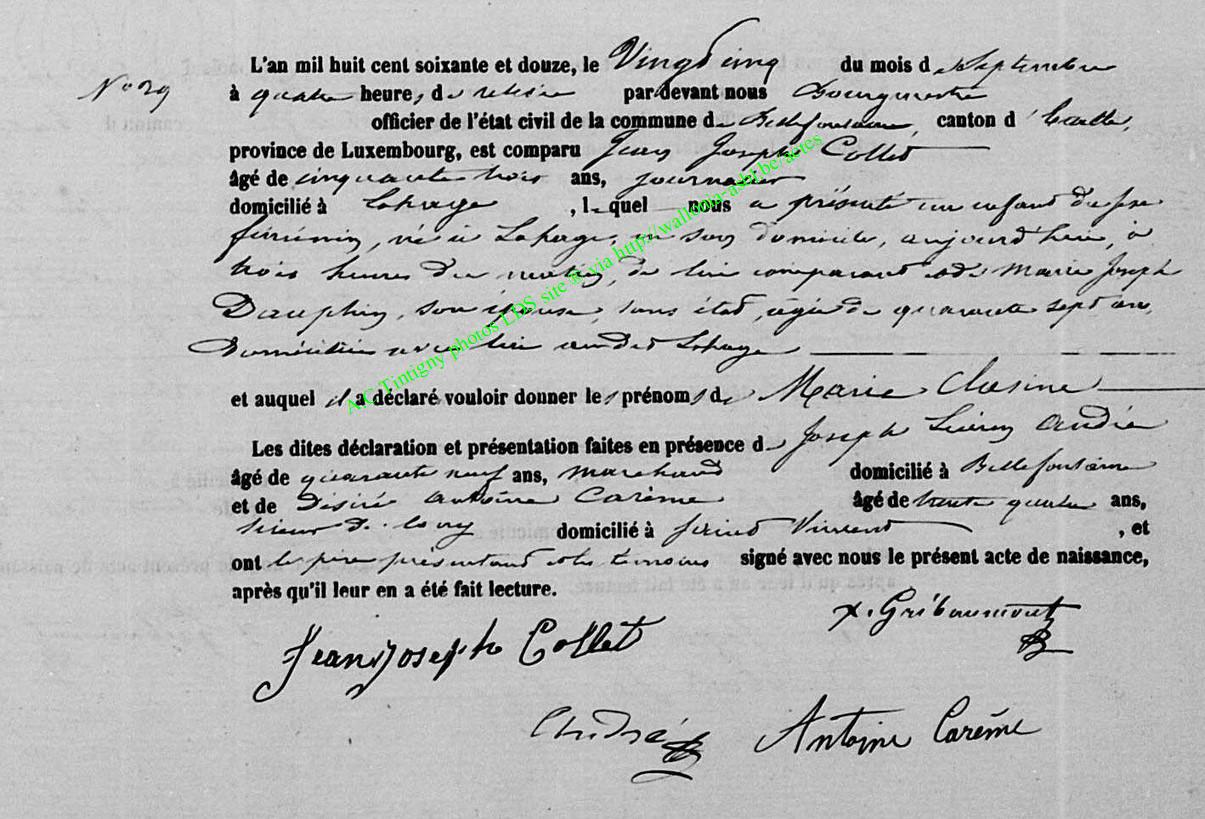 L'an mil huit cent soixante et douze, le Vingt cinq du mois de Septembre
No 29
à quatre heures de relevée par devant nous Bourgmestre
officier de l'état civil de la commune de Bellefontaine, canton d'Etalle,
province de Luxembourg, est comparu Jean Joseph Collet
âgé de cinquante trois ans, journalier
domicilié à Lahage, lequel nous a présenté un enfant du sexe
féminin, né à Lahage, en son domicile, aujourd'hui, à
trois heures du matin, de lui comparant et de Marie Joseph
Dauphin, son épouse, sans état, âgée de quarante sept ans,
domiciliée avec lui audit Lahage
et auquel il a déclaré vouloir donner les prénoms de Marie
Les dites déclaration et présentation faites en présence de Joseph André
âgé de quarante neuf ans, marchand domicilié à Bellefontaine
et de Désiré Antoine Carème âgé de trente quatre ans,
domicilié à Saint Vincent, et
ont le père présentant et les témoins signé avec nous le présent acte de naissance,
après qu'il leur en a été fait lecture.
x. Gribaumont
Jean joseph Collet
André
Antoine Carême
A/C Tintigny photos LDS site © via http://wallonia-asbl.be/actes